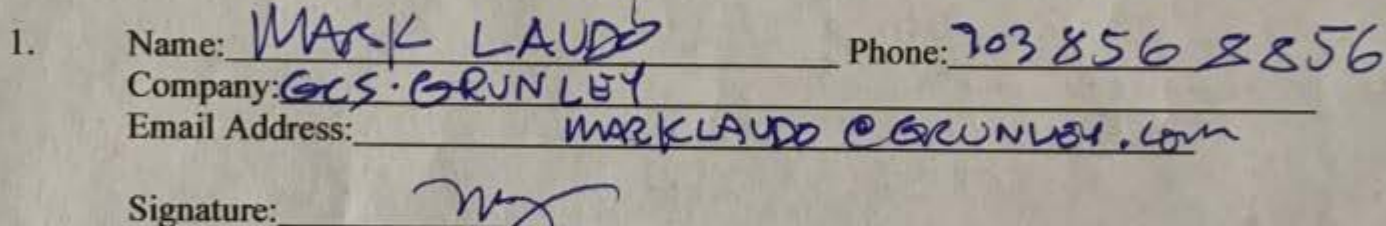 1. Name: MARK LAUDO Phone: 703 856 8856
Company: GCS·GRUNLEY
Email Address: MARKLAUDO@GRUNLEY.com
Signature: